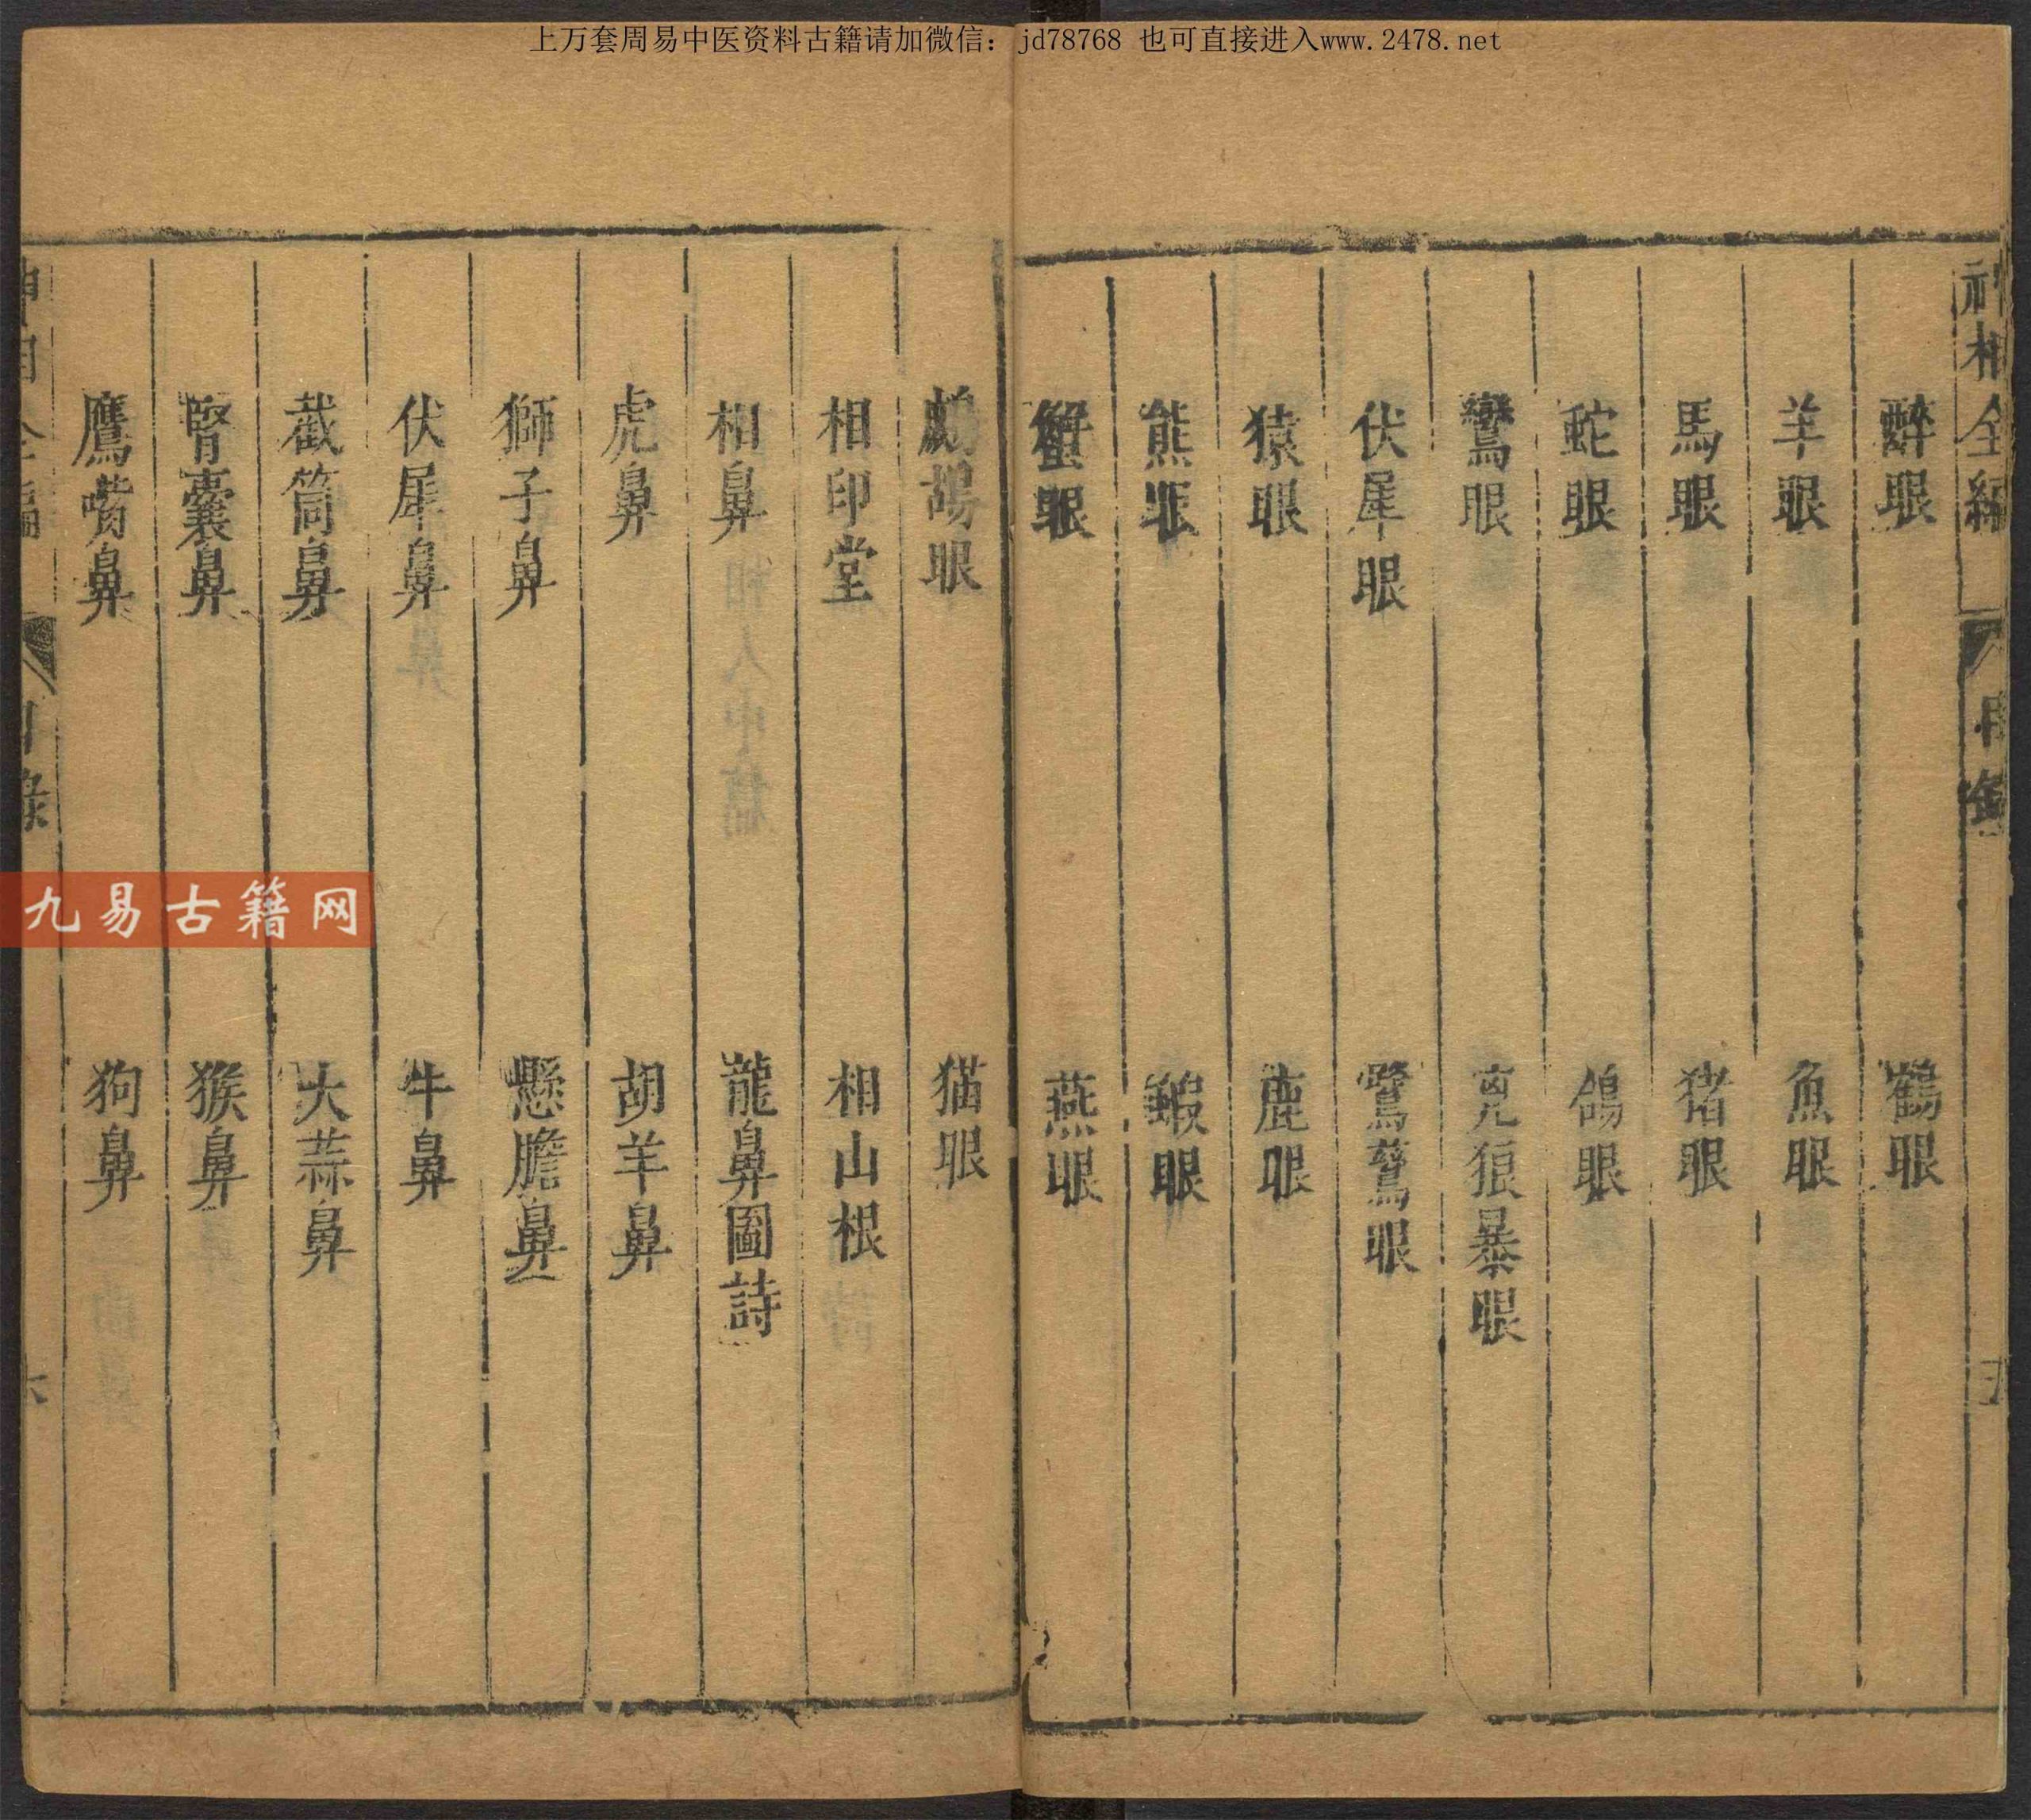 上万套周易中医资料古籍请加微信：jd78768 也可直接进入www.2478.net
神相全編
目錄
醉眼 鶴眼
羊眼 魚眼
馬眼 猪眼
蛇眼 鴿眼
鸞眼 狼暴眼
伏犀眼 鷺鷥眼
猿眼 鹿眼
熊眼 蝦眼
蟹眼 燕眼
鷓鴣眼 猫眼
相印堂 相山根
相鼻 龍鼻圖詩
虎鼻 胡羊鼻
獅子鼻 懸膽鼻
伏犀鼻 牛鼻
截筒鼻 大蒜鼻
腎囊鼻 猴鼻
鷹嘴鼻 狗鼻
神相全編
目錄
六
九易古籍网